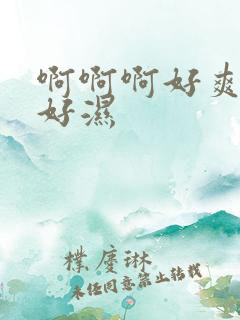 啊啊啊好爽
好濕
樸慶琳
未任同意禁止转载